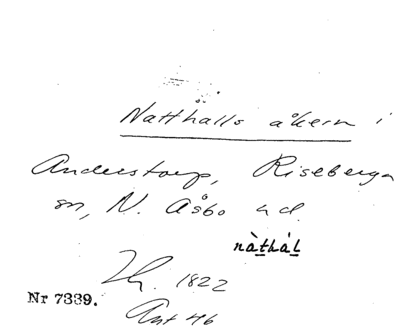 Natthalls åkern i
Anderstorp, Riseberga
sn, N. Åsbo hd.
nàthál
Lh. 1822
Nr 7339.
Ant 46